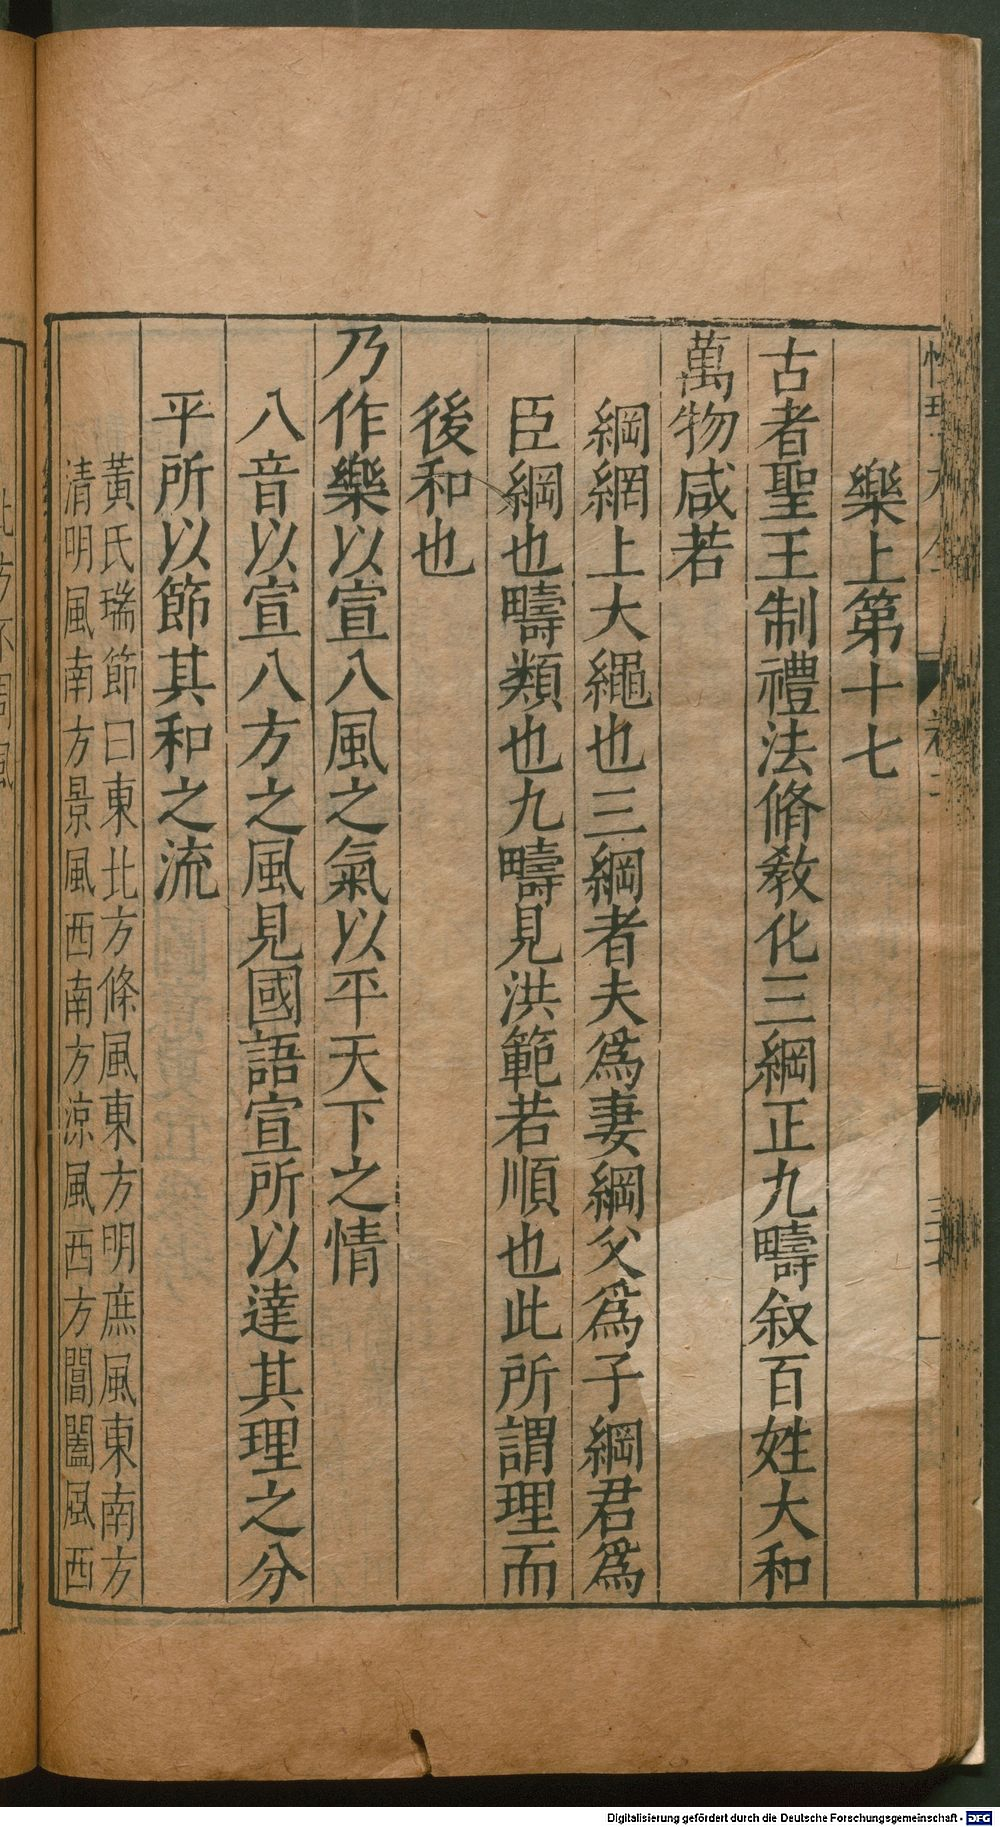 樂上第十七
古者聖王制禮法脩教化三綱正九疇叙百姓大和
萬物咸若
綱網上大繩也三綱者夫爲妻綱父爲子綱君爲
臣綱也疇類也九疇見洪範若順也此所謂理而
後和也
乃作樂以宣八風之氣以平天下之情
八音以宣八方之風見國語宣所以達其理之分
平所以節其和之流
黃氏瑞節曰東北方條風東方明庶風東南方
清明風南方景風西南方涼風西方閶闔風西
北方不周風
Digitalisierung gefördert durch die Deutsche Forschungsgemeinschaft - DFG